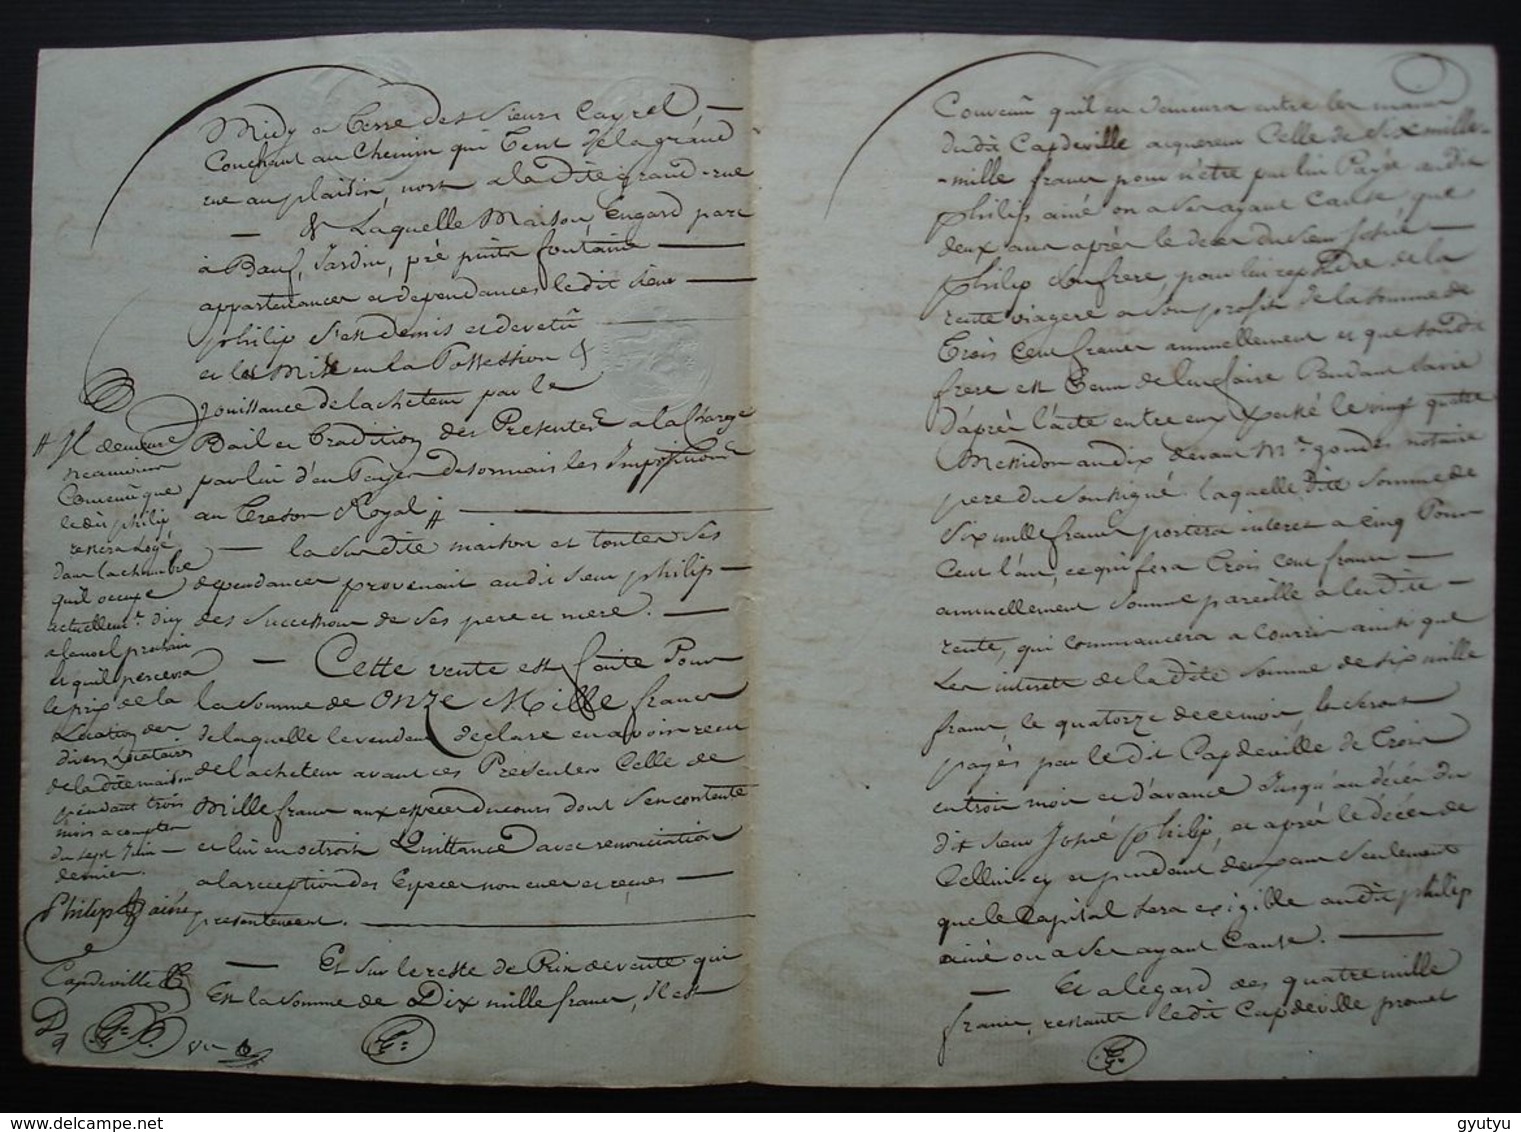 Midy a terre des sieurs Cayrel, —
Couchant au Chemin qui tent de la grand
rue au plaisin, nort a la dite grand-rue
— & Laquelle Maison, Engard, parc
à Bœuf, Jardin, pré, puits fontaine —
appartenances et dependances le dit sieur —
philip s'est demis et devetu —
et la Mise en la Possession &
jouissance de lacheteur par le
Bail et tradition des Presentes a la Charge
par lui d'en Payer desormais les Impositions
au tresor Royal #
— la susdite maison et toutes ses
dependances provenait audit sieur philip —
des successions de ses pere et mere. —
— Cette vente est faite Pour
la somme de Onze Mille francs
de laquelle le vendeur déclare en avoir reçu
de lacheteur avant ces Presentes Celle de
Mille francs aux especes du cours dont s'en contente
et lui en octroit Quittance avec renonciation
a la reception des Especes non eues et reçues —
presentement. —
— Et sur le reste de Prix de vente qui
Est la somme de Dix mille francs, il est
# Il demeure
neanmoins
Convenu que
le dit philip
restera Logé
dans la chambre
quil occupe
actuellemt. d'icy
a la noel prochain
et quil percevra
le prix de la
Location des
divers Locataires
de la dite maison
pendant trois
mois a compter
du sept Juin —
dernier.
Philip aîné
Capdeville
Convenu quil en demeura entre les mains
dudit Capdeville aquereur Celle de Six mille-
-mille francs pour n'être par lui Payée audit
philip ainé ou a ses ayant Cause que
deux ans après le deces du sieur Josué —
philip son frere, pour lui repondre de la
rente viagere a son profit de la somme de
trois Cent francs annuellement et que son dit
frere est tenu de lui faire Pendant sa vie
d'après l'acte entre eux passé le vingt quatre
Messidor an dix devant Mr. gondes notaire
pere du soussigné. laquelle dite somme de
Six mille francs portera interet a cinq Pour
Cent l'an, ce qui fera trois Cent francs —
annuellement somme pareille a la dite —
rente, qui commancera a courrir ainsi que
Les interets de la dite somme de six mille
francs, le quatorze decembre, le seront
payés par le dit Capdeville de trois
en trois mois et d'avance Jusqu'au décés du
dit sieur Josué philip, et après le décés de
Cellui-cy et pendant deux ans seulement
que le Capital sera exigible audit philip
ainé ou a ses ayant Cause. —
— Et a legard des quatre mille
francs, restants le dit Capdeville promet
delcampe.net
gyutyu